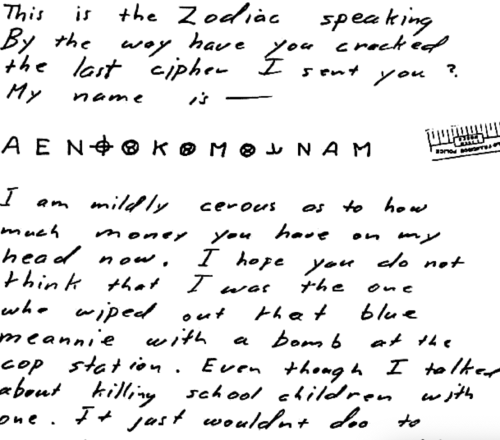 This is the Zodiac speaking
By the way have you cracked
the last cipher I sent you ?
My name is —
A E N ⌖ ⊗ K ⊗ M ⊗ N A M
I am mildly cerous as to how
much money you have on my
head now. I hope you do not
think that I was the one
who wiped out that blue
meannie with a bomb at the
cop station. Even though I talked
about killing school children with
one. It just wouldnt doo to